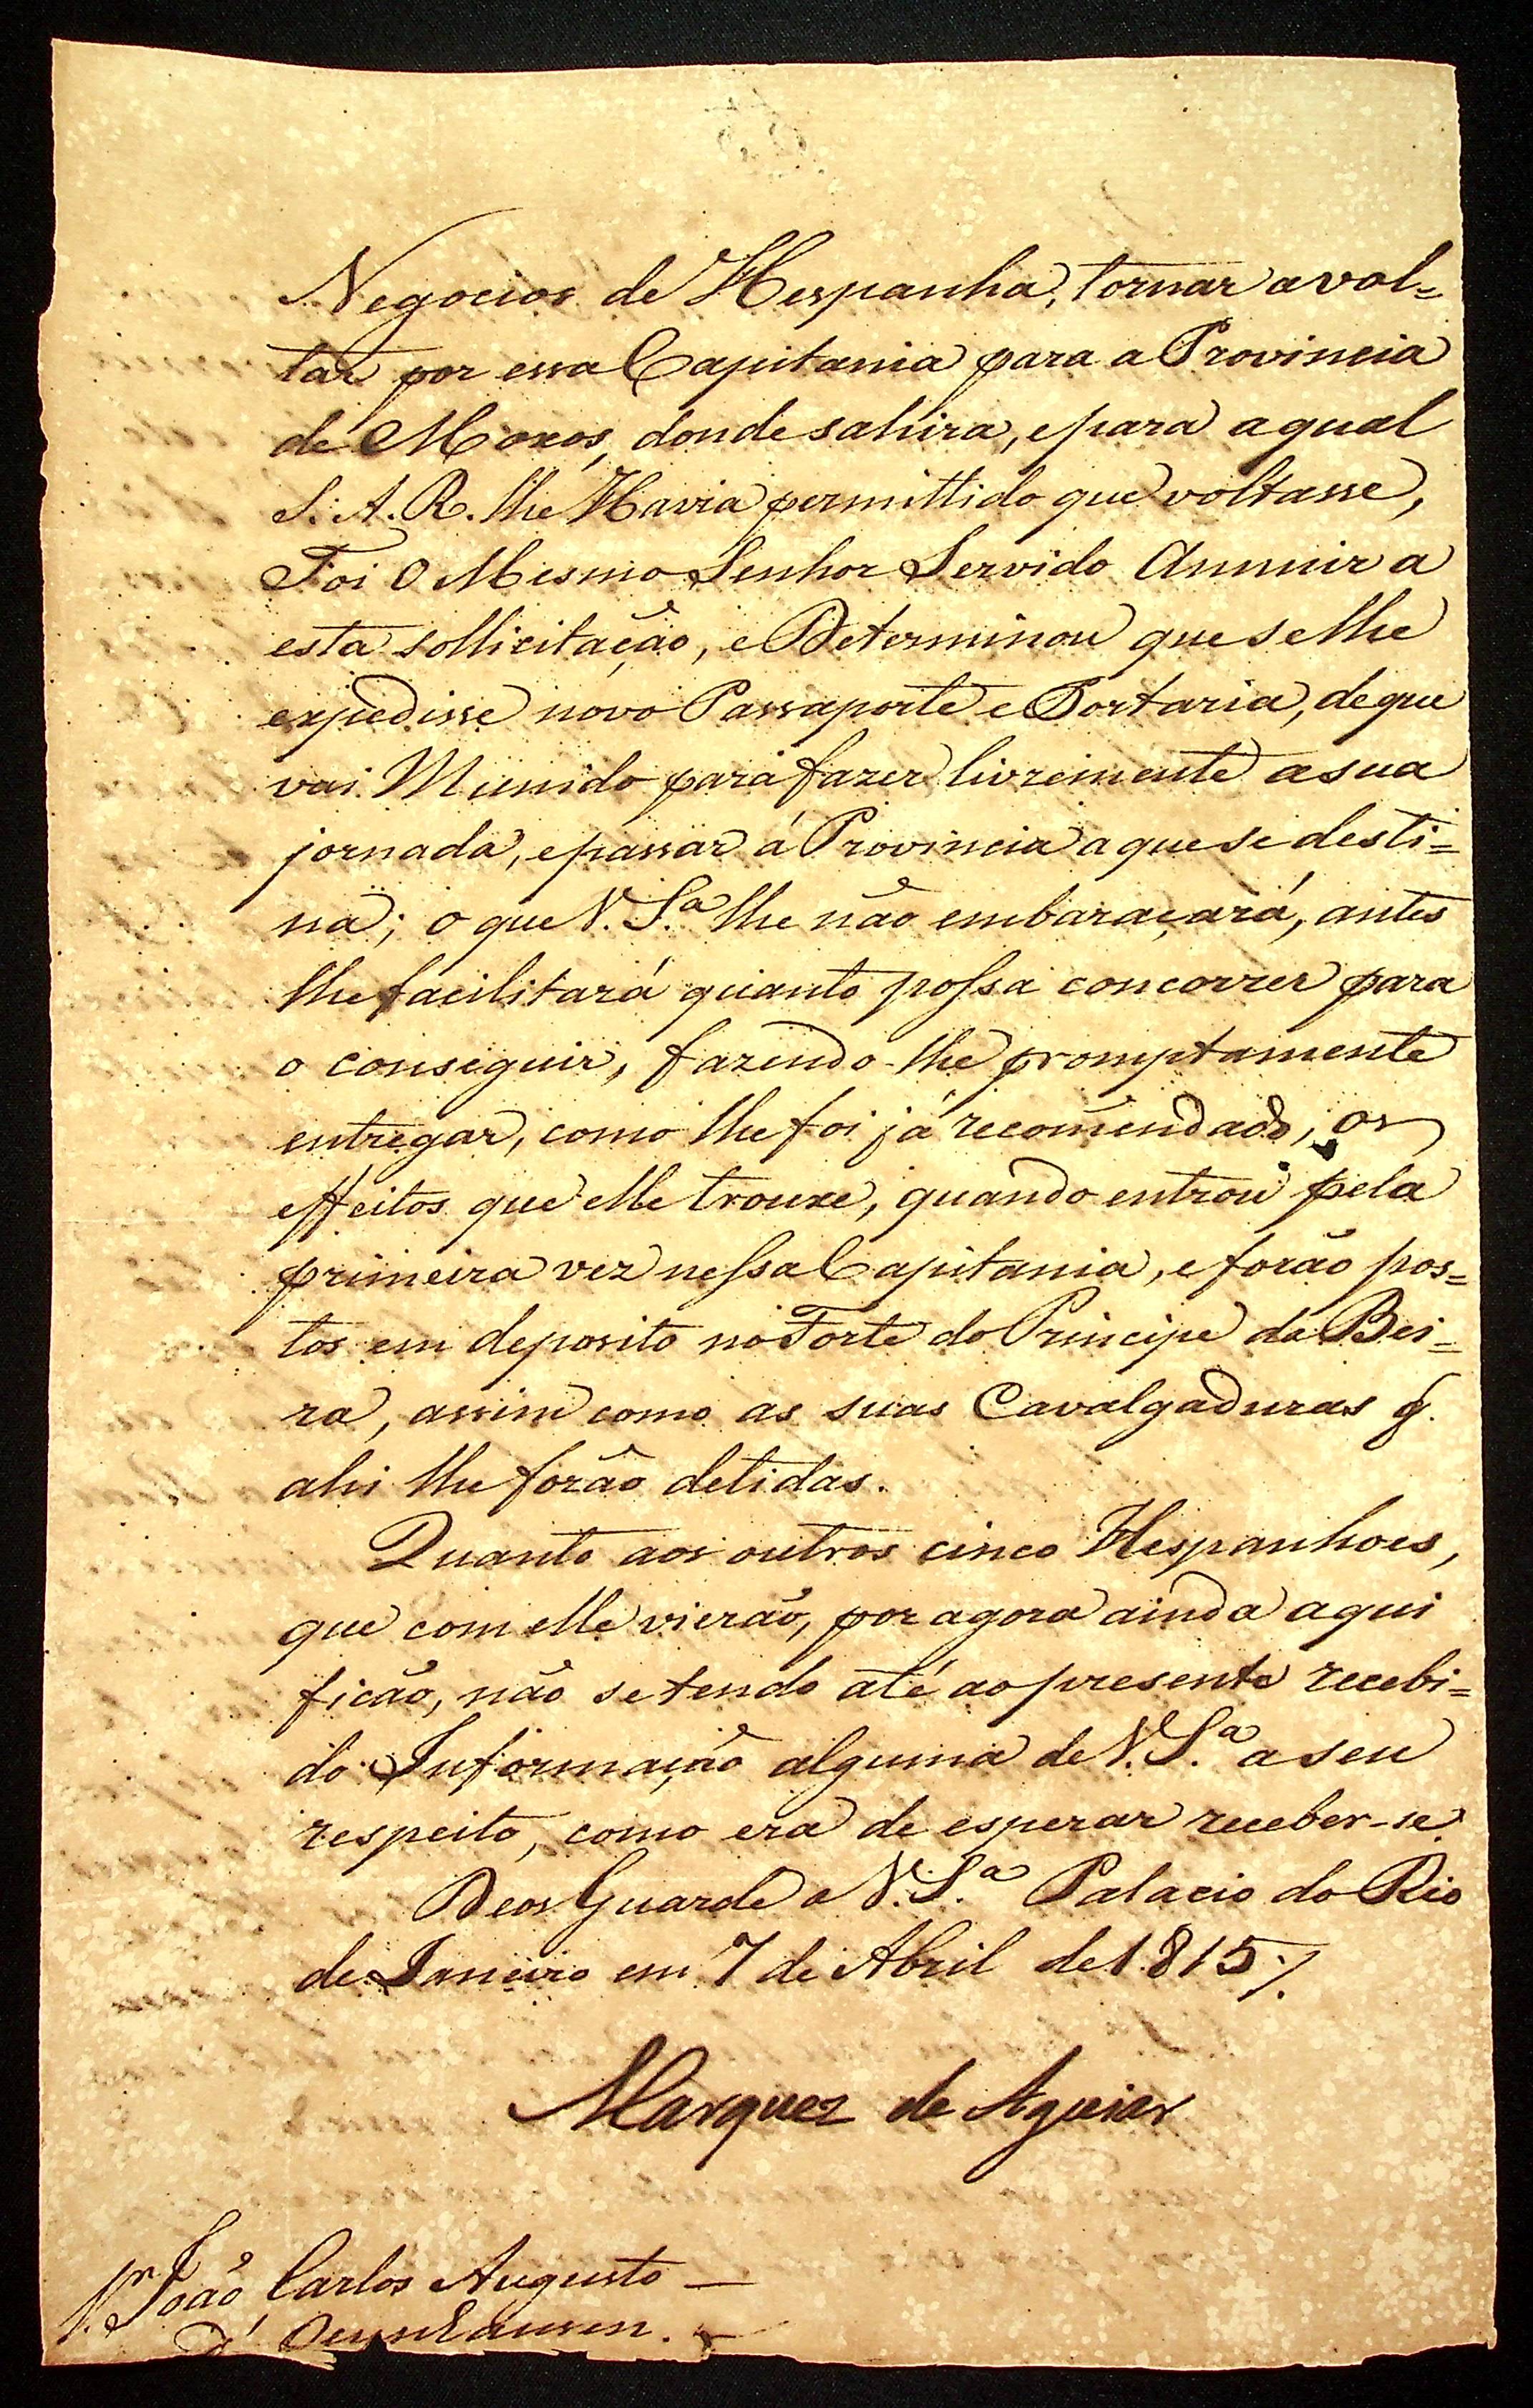 Negocios de Hespanha, tornar a vol=
tar por essa Capitania para a Provincia
de Moxos, donde sahira, e para a qual
S. A. R. lhe Havia permittido que voltasse,
Foi O Mesmo Senhor Servido Annuir a
esta sollicitação, e Determinou que se lhe
expedisse novo Passaporte e Portaria, de que
vai Munido para fazer livremente a sua
jornada, e passar á Provincia a que se desti=
na; o que V. S.ª lhe não embaraçará, antes
lhe facilitará quanto poſsa concorrer para
o conseguir, fazendo-lhe promptamente
entregar, como lhe foi já recom̃endado, os
effeitos que elle trouxe, quando entrou pela
primeira vez neſsa Capitania, e forão pos=
tos em deposito no Forte do Principe da Bei=
ra, assim como as suas Cavalgaduras q.
ahi lhe forão detidas.
Quanto aos outros cinco Hespanhoes,
que com elle vierão, por agora ainda aqui
ficão, não se tendo até ao presente recebi=
do Informação alguma de V. S.ª a seu
respeito, como era de esperar receber-se.
Deos Guarde a V. S.ª Palacio do Rio
de Janeiro em 7 de Abril de 1815 ./.
Marquez de Aguiar
S.r João Carlos Augusto —
d' Oeynhausen. —